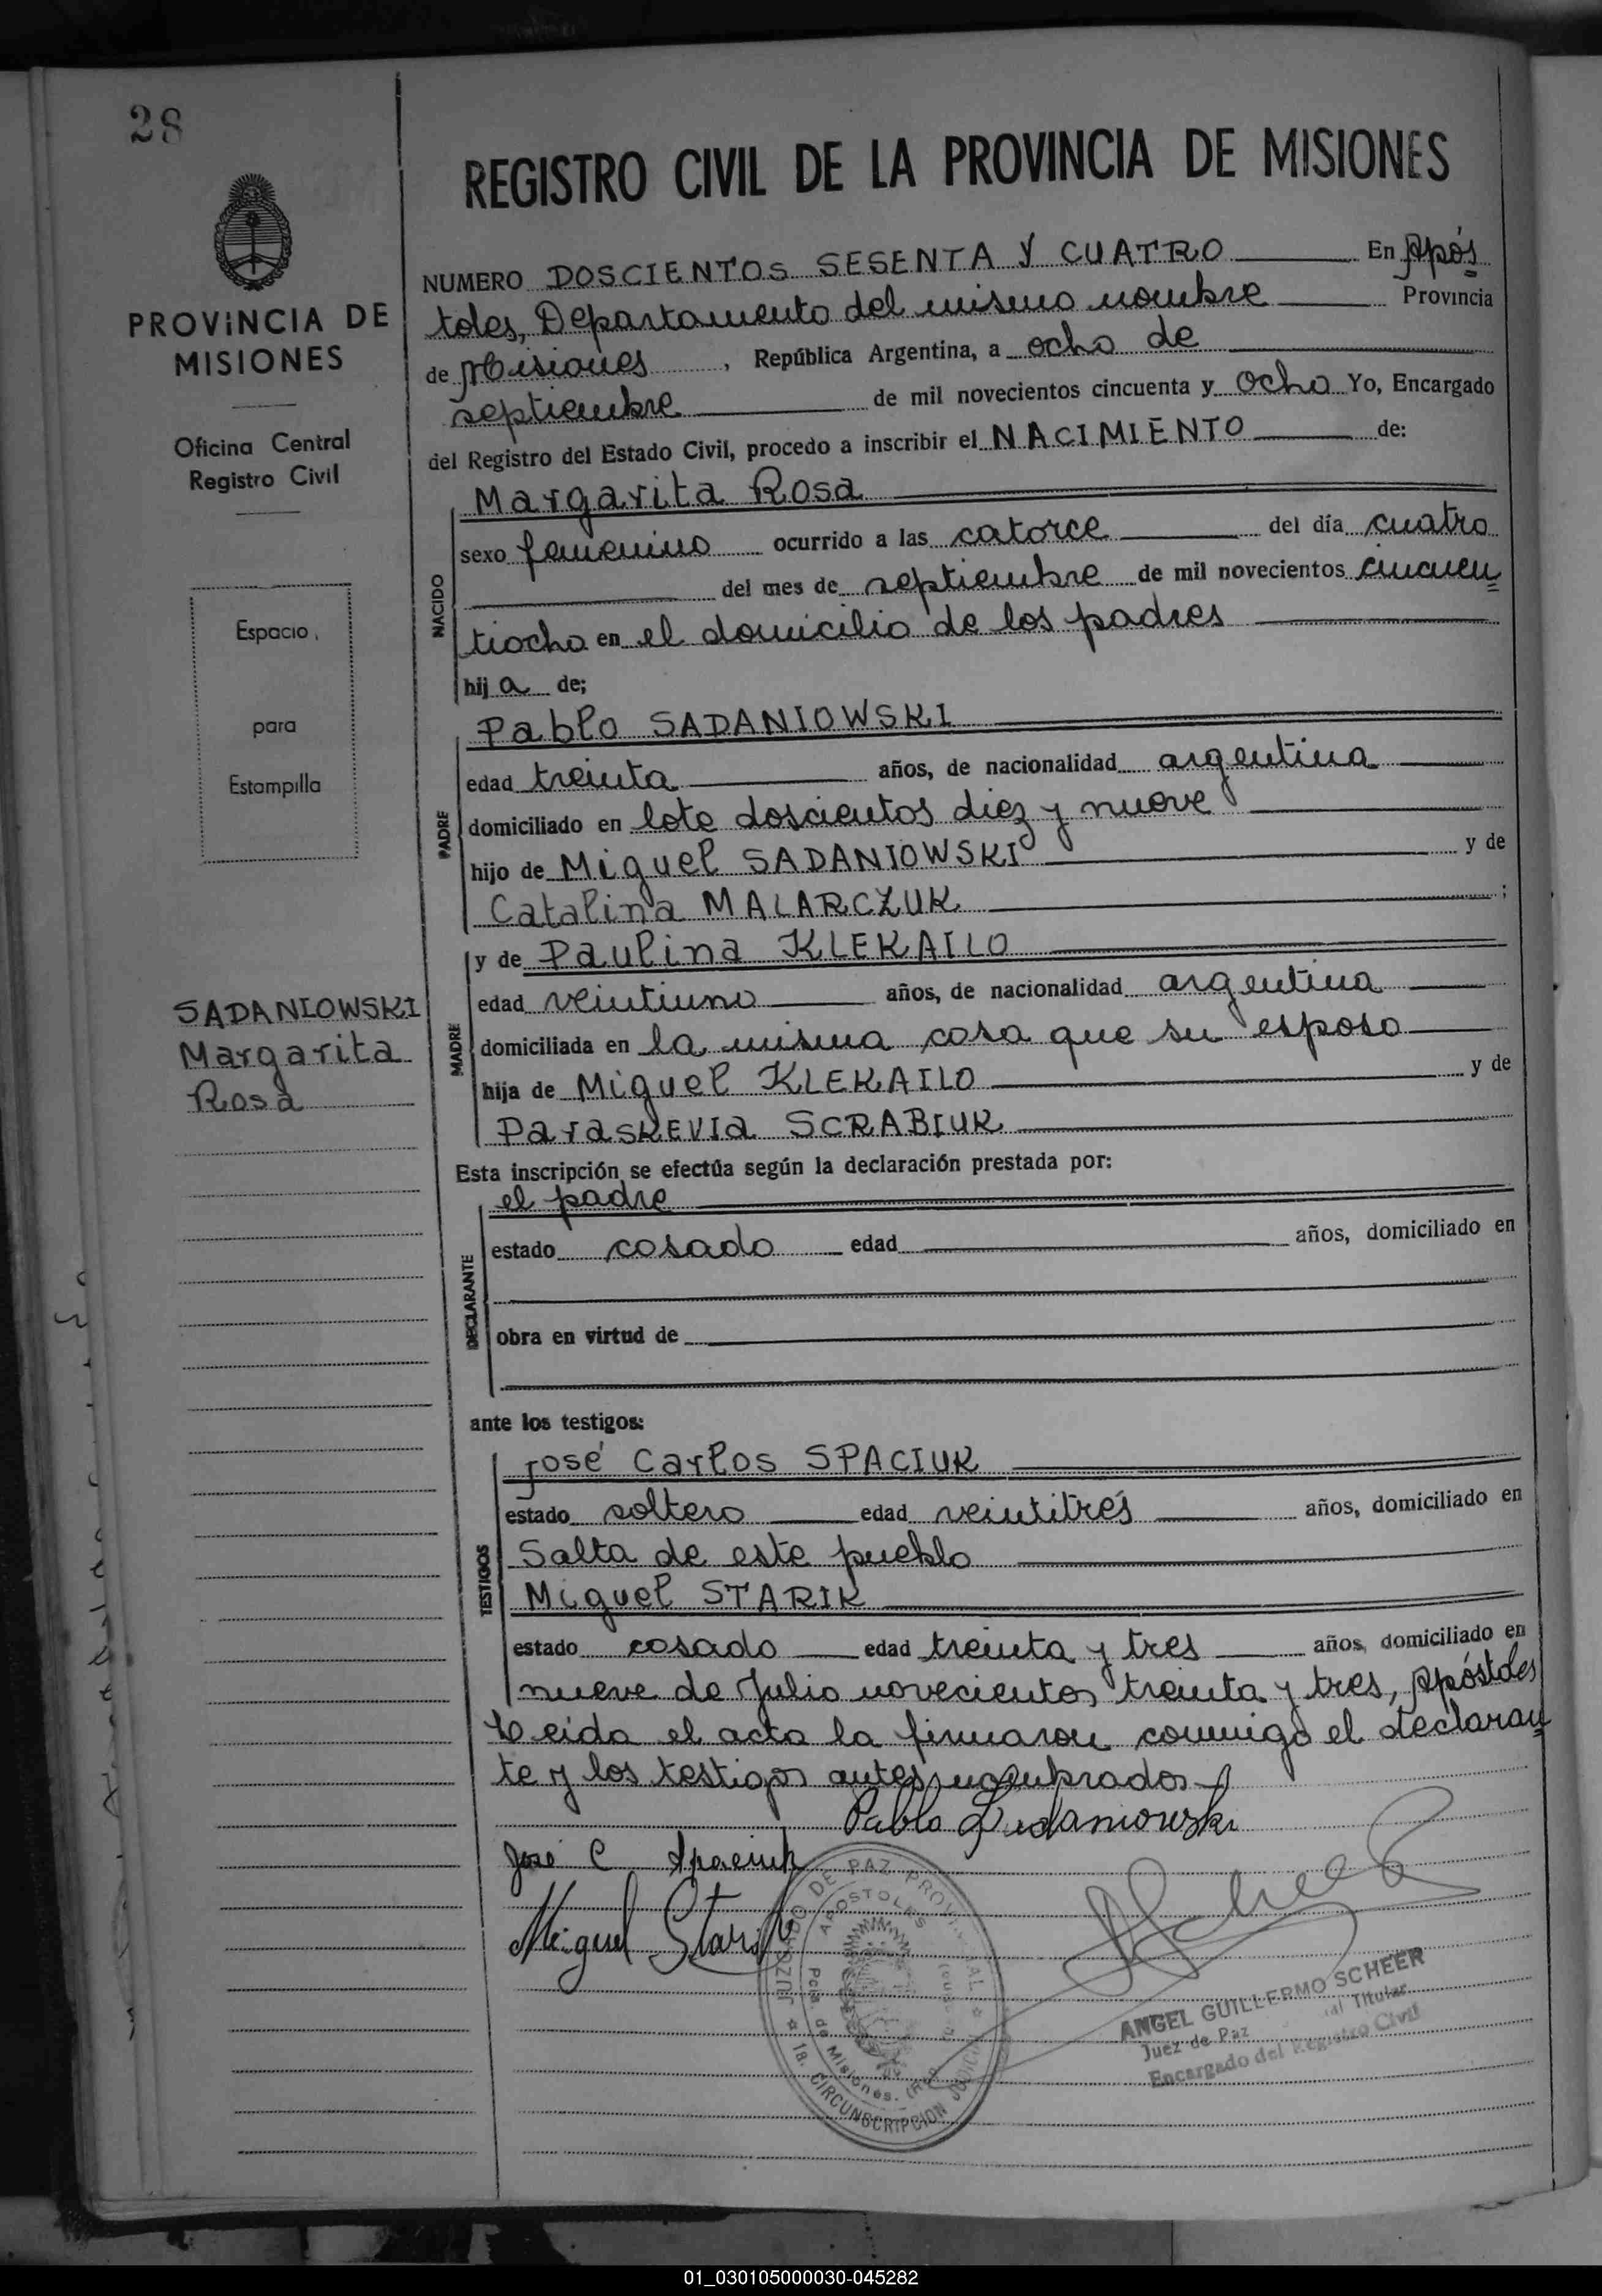 28
PROVINCIA DE
MISIONES
Oficina Central
Registro Civil
Espacio
para
Estampilla
SADANIOWSKI
Margarita
Rosa
REGISTRO CIVIL DE LA PROVINCIA DE MISIONES
NUMERO DOSCIENTOS SESENTA Y CUATRO En Após
toles, Departamento del mismo nombre Provincia
de Misiones, República Argentina, a ocho de
septiembre de mil novecientos cincuenta y ocho Yo, Encargado
del Registro del Estado Civil, procedo a inscribir el NACIMIENTO de:
NACIDO
Margarita Rosa
sexo femenino ocurrido a las catorce del día cuatro
del mes de septiembre de mil novecientos cincuen
tiocho en el domicilio de los padres
hij a de;
PADRE
Pablo SADANIOWSKI
edad treinta años, de nacionalidad argentina
domiciliado en lote doscientos diez y nueve
hijo de Miguel SADANIOWSKI y de
Catalina MALARCZUK ;
MADRE
y de Paulina KLEKAILO
edad veintiuno años, de nacionalidad argentina
domiciliada en la misma casa que su esposo
hija de Miguel KLEKAILO y de
Paraskevia SCRABIUK
Esta inscripción se efectúa según la declaración prestada por:
DECLARANTE
el padre
estado casado edad años, domiciliado en
obra en virtud de
ante los testigos:
TESTIGOS
José Carlos SPACIUK
estado soltero edad veintitrés años, domiciliado en
Salta de este pueblo
Miguel STARIK
estado casado edad treinta y tres años, domiciliado en
nueve de Julio novecientos treinta y tres, Apóstoles
Leida el acta la firmaron conmigo el declaran
te y los testigos antes nombrados
Pablo Sadaniowski
José C Spaciuk
Miguel Starik
JUZGADO DE PAZ PROVINCIAL
APOSTOLES
Pcia. de Misiones.
1a. CIRCUNSCRIPCION JUDICIAL
ANGEL GUILLERMO SCHEER
Juez de Paz Titular
Encargado del Registro Civil
01_030105000030-045282